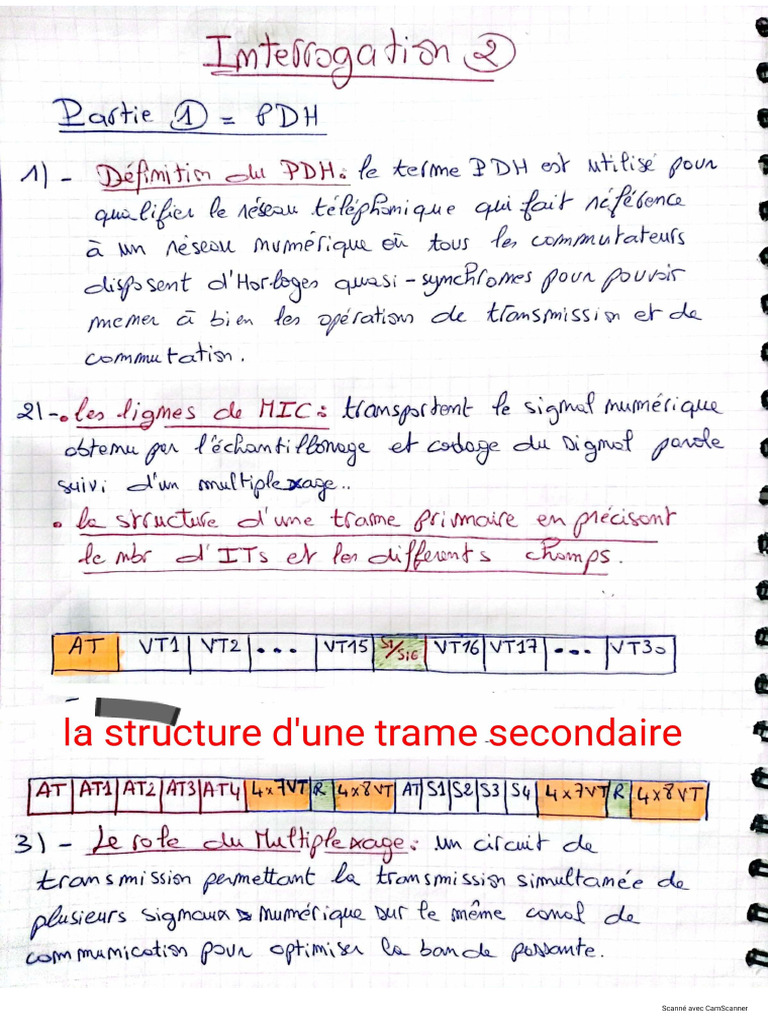 Interrogation 2
Partie 1 = PDH
1) - Définition du PDH: le terme PDH est utilisé pour
qualifier le réseau téléphonique qui fait référence
à un réseau numérique où tous les commutateurs
disposent d'Horloges quasi-synchrones pour pouvoir
mener à bien les opérations de transmission et de
commutation.
2) - . les lignes de MIC: transportent le signal numérique
obtenu par l'échantillonage et codage du Signal parole
suivi d'un multiplexage..
. la structure d'une trame primaire en précisant
le nbr d'ITs et les différents champs.
AT VT1 VT2 ... VT15 SI/SiG VT16 VT17 ... VT30
la structure d'une trame secondaire
AT AT1 AT2 AT3 AT4 4x7VT R 4x8VT AT S1 S2 S3 S4 4x7VT R 4x8VT
3) - Le role du Multiplexage: un circuit de
transmission permettant la transmission simultanée de
plusieurs signaux numérique sur le même canal de
communication pour optimiser la bande passante.
Scanné avec CamScanner